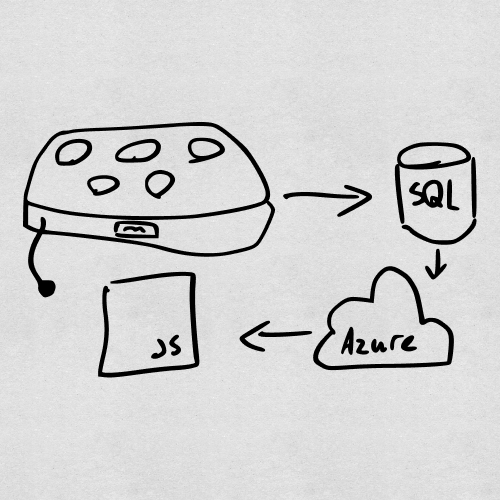 SQL
Azure
JS